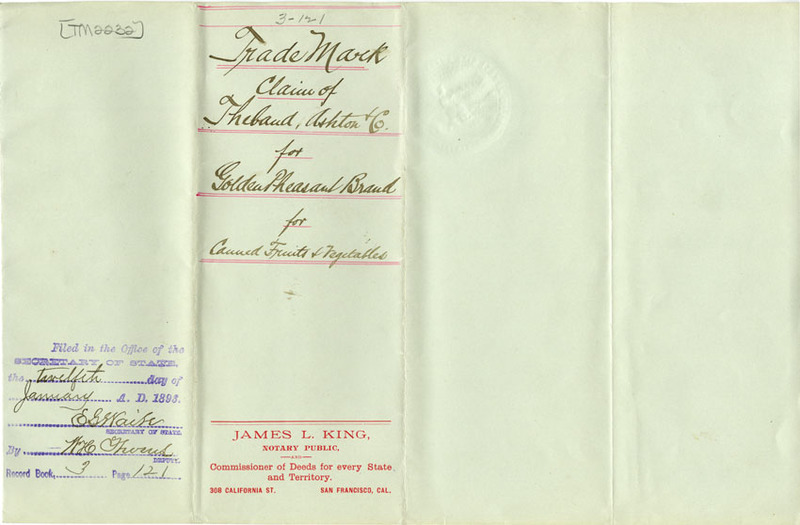 [TM2232]
Filed in the Office of the
SECRETARY OF STATE,
the twelfth day of
January A. D. 1893.
E G Waite
SECRETARY OF STATE.
By W H
DEPUTY.
Record Book, 3 Page 121
3-121
Trade Mark
Claim of
Thebaud, Ashton & Co.
for
Golden Pheasant Brand
for
Canned Fruits & Vegetables
JAMES L. KING,
NOTARY PUBLIC,
AND
Commissioner of Deeds for every State
and Territory.
308 CALIFORNIA ST. SAN FRANCISCO, CAL.